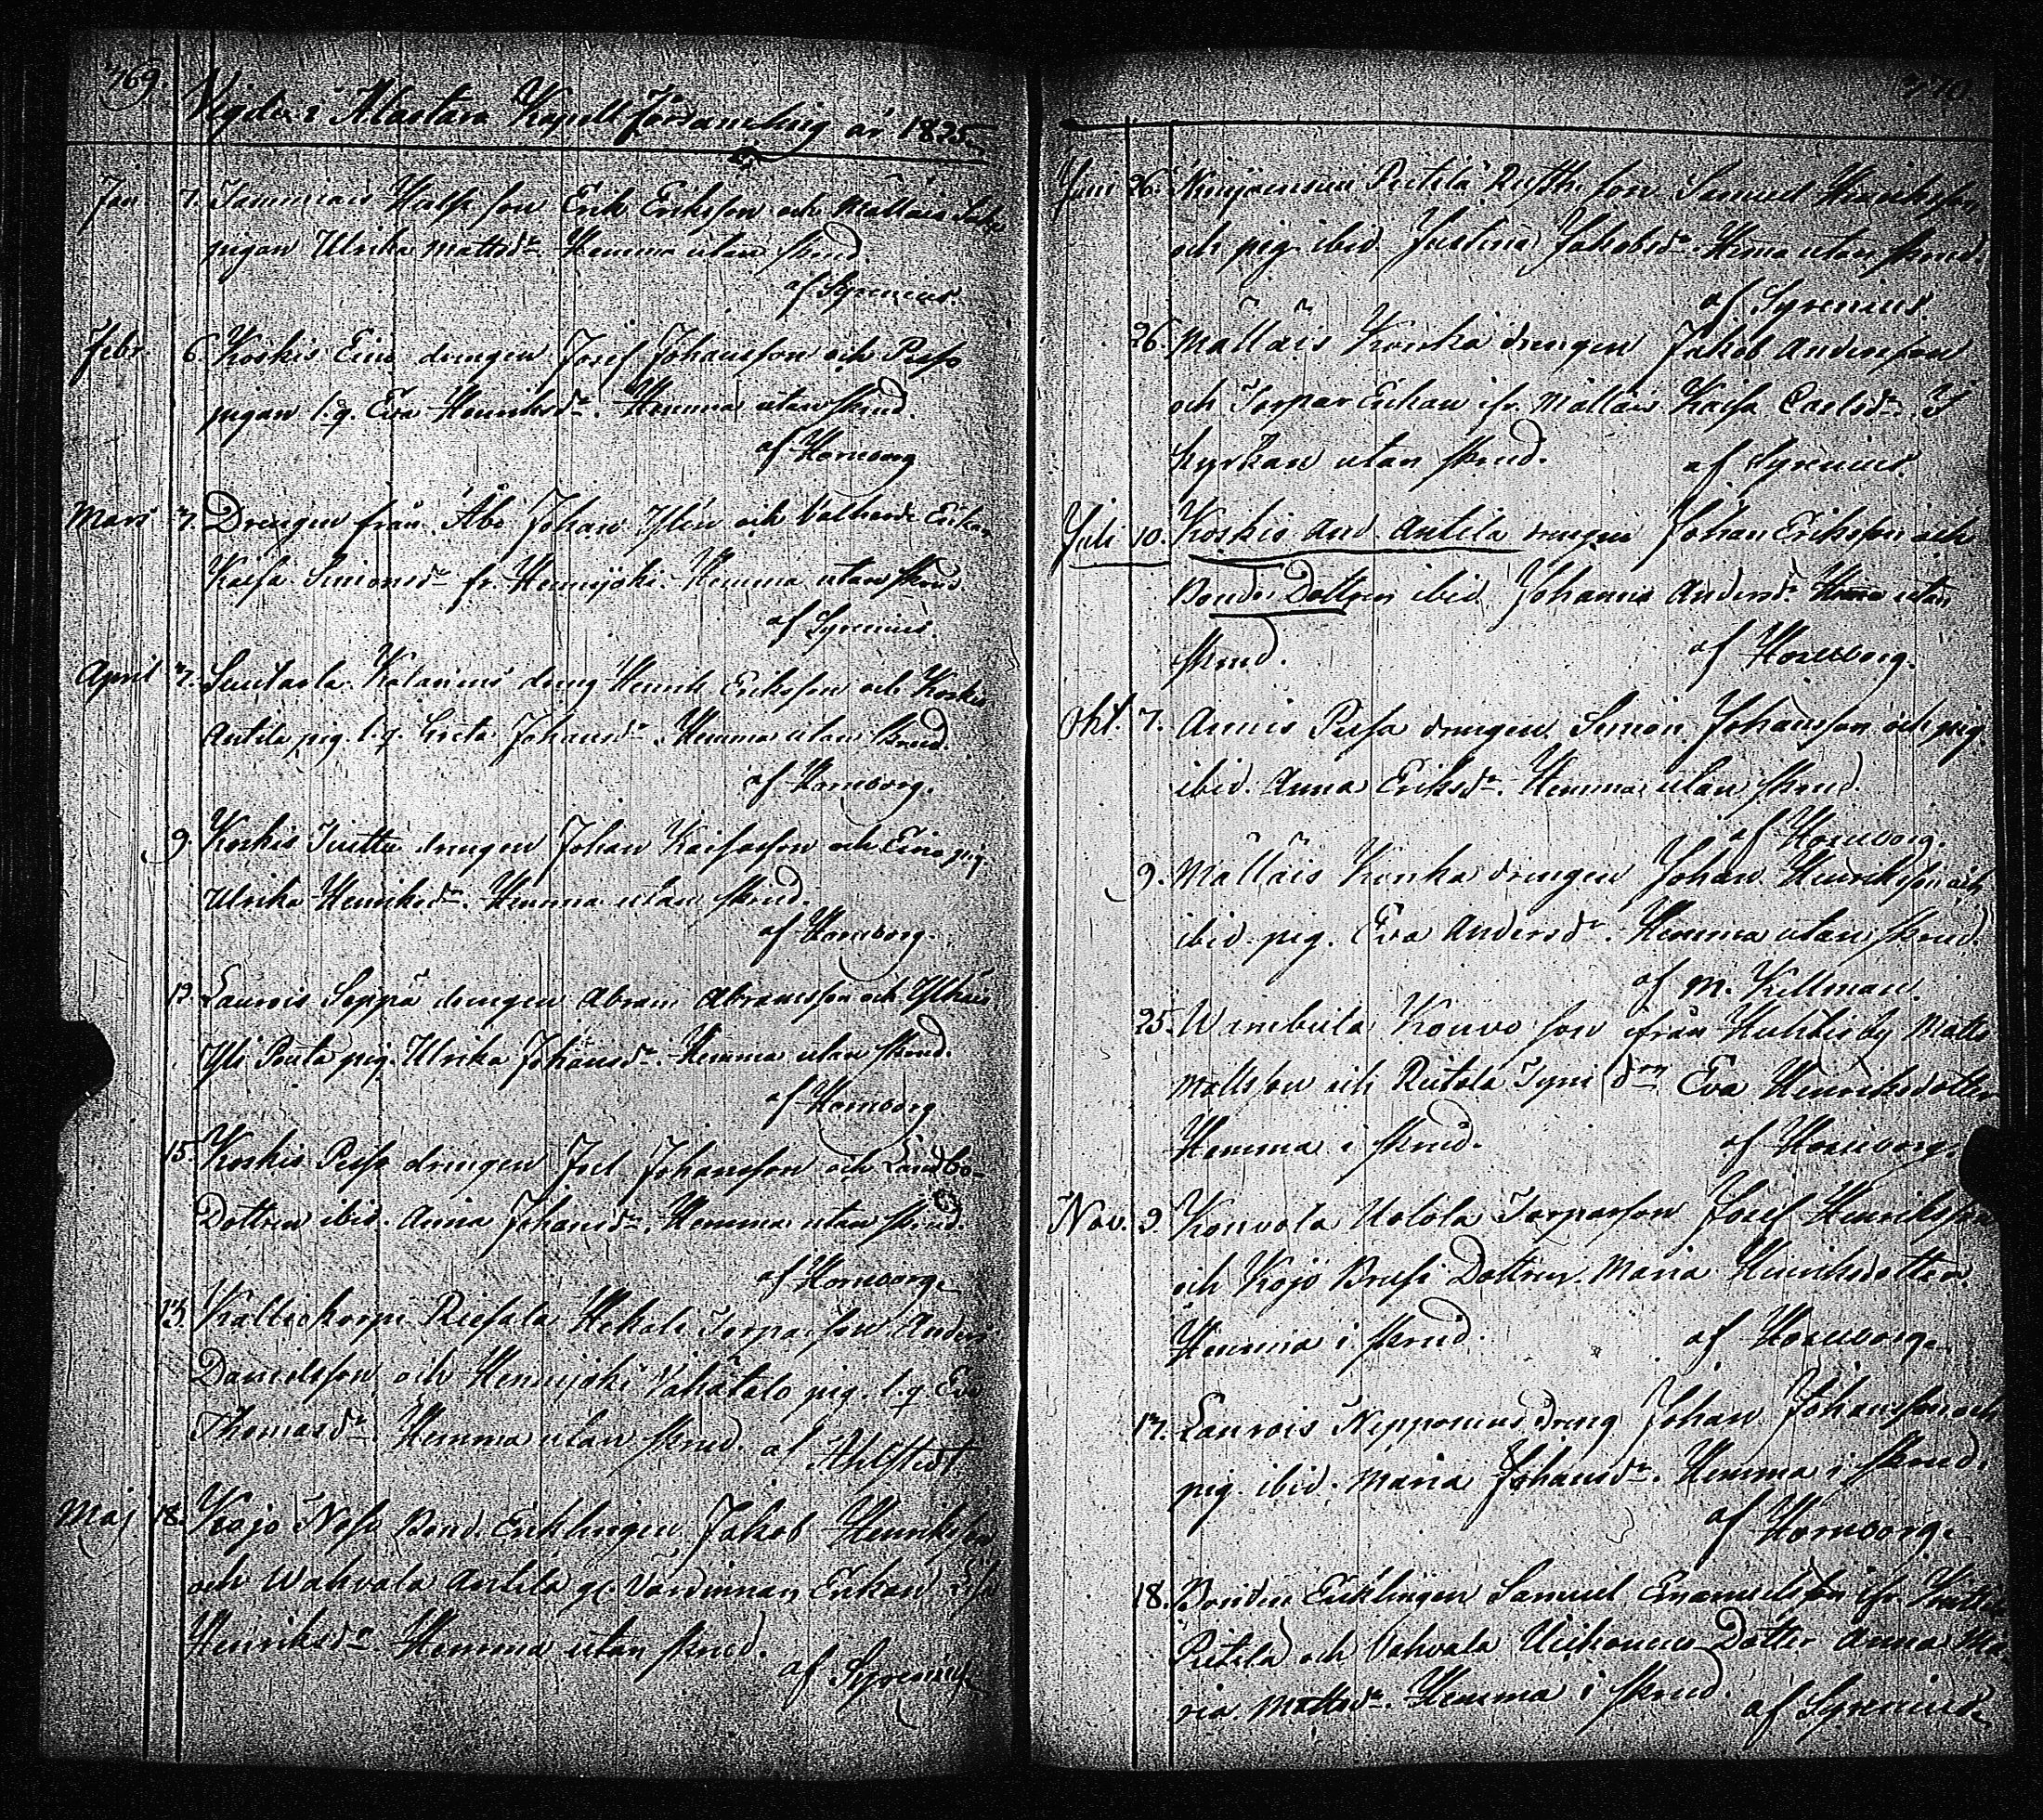 769.
Vigde i Alastaro Kapell Församling år 1825.
Jan 7. Tammiais son Erik Eriksson och Mällais
pigan Ulrika Mattsdr. Hemma utan skrud
af Syrenius.
Febr. 6. Koskis Eino drengen Josef Johansson och
pigan l.q. Eva Henriksdr. Hemma utan skrud.
af Hornborg
Mars 7. Drengen från Åbo Johan och
Kaisa Simonsdr fr. Hennijoki. Hemma utan skrud
af Syrenius.
April 7. dreng Henrik Eriksson och Koskis
Antila pig. l.q. Greta Johansdr. Hemma utan skrud.
af Hornborg.
9. Koskis drengen Johan och Eino pig.
Ulrika Henriksdr. Hemma utan skrud.
af Hornborg.
12. Laurois Seppä drengen Abram Abramsson och
pig. Ulrika Johansdr. Hemma utan skrud.
af Hornborg
15. Koskis drengen Joel Johansson och Landbo-
Dottren ibid. Anna Johansdr. Hemma utan skrud.
af Hornborg.
Torparson Anders
Danielsson och Hennijoki Vahätalo pig. l.q. Eva
Thomasdr. Hemma utan skrud. af Ahlstedt.
Maj 18. Kojo Bond. Enklingen Jakob Henriksson
och Wahvala Antila gl. Värdinnan Enkan
Henriksdr Hemma utan skrud.
af Syrenius.
770.
Juni 26. son Samuel Henriksson
och pig. ibid. Justina Jakobsdr. Hemma utan skrud.
af Syrenius.
26. Mälläis Könkä drengen Jakob Andersson
och Torpar Enkan ifr. Mällais Kaisa Carlsdr. I
Kyrkan utan skrud. af Syrenius
Juli 10. Koskis And. Antila drengen Johan Eriksson och
Bonde Dottren ibid. Johanna Andersdr. Hemma utan
skrud. af Hornborg.
Okt. 7. Annis drengen Simon Johansson och pig.
ibid. Anna Eriksdr. Hemma utan skrud.
af Hornborg.
9. Mällais drengen Johan Henriksson och
ibid. pig. Eva Andersdr. Hemma utan skrud.
af M. Killman.
25. Wambula Kouvo son ifrån Huhtis by Matts
Mattsson och Eva Henriksdotter
Hemma i skrud. af Hornborg.
Nov. 9. Kouvola Uotola Torparson Josef Henriksson
och Kojo Dottren Maria Henriksdotter.
Hemma i skrud. af Hornborg.
17. Laurois dreng Johan Johansson och
pig. ibid. Maria Johansdr. Hemma i skrud.
af Hornborg.
18. Bonden Enklingen Samuel Emanuelsson ifr.
och Vahvala Dotter Anna Ma-
ria Mattsdr. Hemma i skrud. af Syrenius.